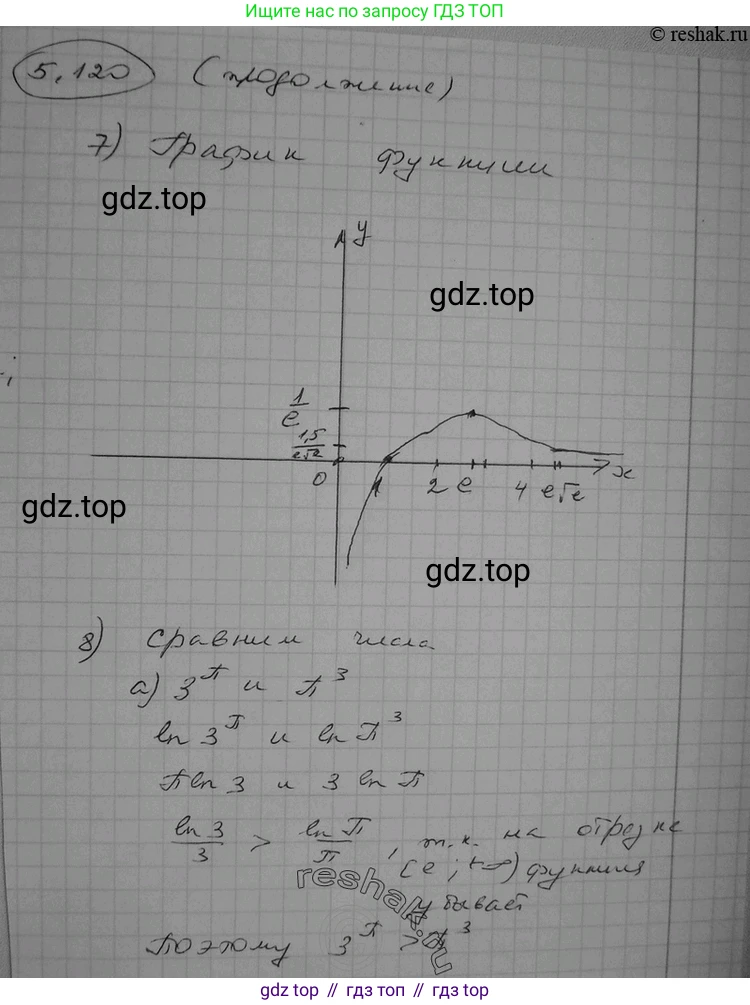 Ищите нас по запросу ГДЗ ТОП
© reshak.ru
5.120 (продолжение)
7) График функции
gdz.top
y
gdz.top
1/e
1,5/e√e
0 1 2 e 4 e√e x
gdz.top
gdz.top
8) Сравним числа
а) 3^π и π^3
ln 3^π и ln π^3
π ln 3 и 3 ln π
ln 3/3 > ln π/π, т.к. на отрезке
(e; +∞) функция
убывает
reshak.ru
Поэтому 3^π > π^3
gdz.top // гдз.топ // gdz.top // гдз.топ